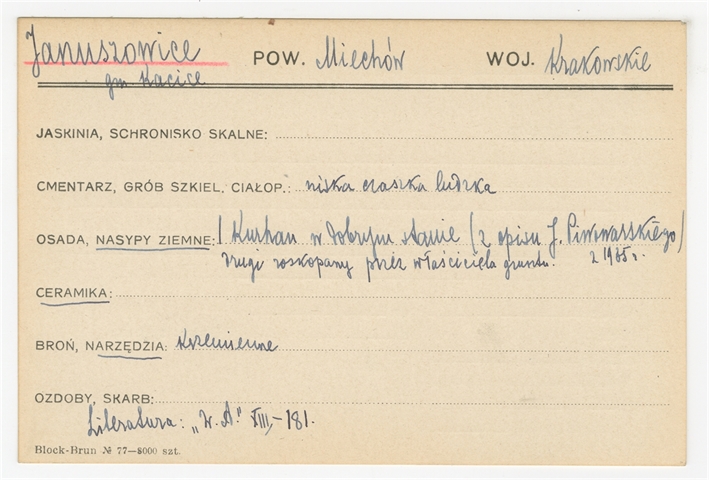 Januszowice POW. Miechów WOJ. Krakowskie
gm. Kacice
JASKINIA, SCHRONISKO SKALNE:
CMENTARZ, GRÓB SZKIEL. CIAŁOP.: niska czaszka ludzka
OSADA, NASYPY ZIEMNE: 1 Kurhan w dobrym stanie (z opisu J. Piwowarskiego)
drugi roskopany przez właściciela gruntu. z 1965 r.
CERAMIKA:
BROŃ, NARZĘDZIA: Krzemienne
OZDOBY, SKARB:
Literatura: „W. A." XIII, - 181.
Block-Brun № 77—8000 szt.